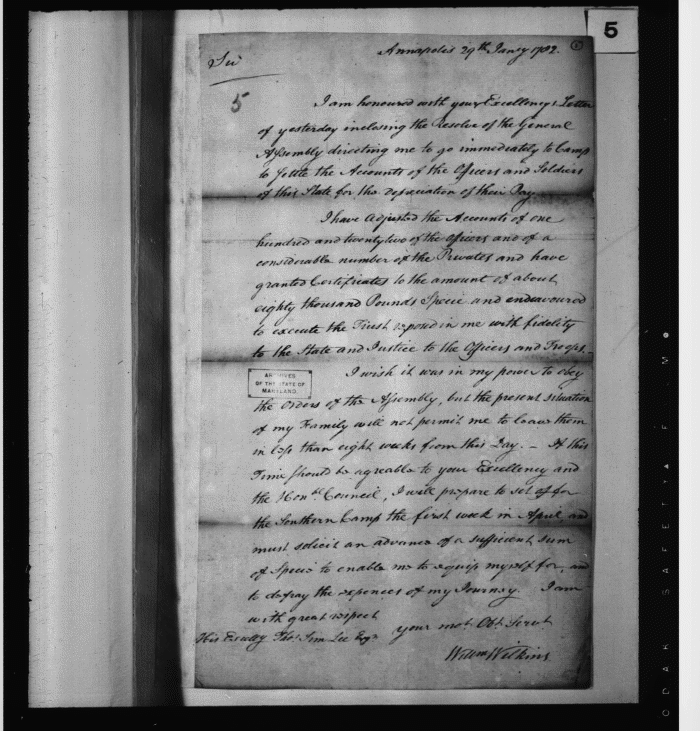 5
Annapolis 29th Jany 1782.
Sir
5
I am honoured with your Excellency's Letter
of yesterday inclosing the Resolve of the General
Assembly directing me to go immediately to Camp
to settle the Accounts of the Officers and Soldiers
of this State for the depreciation of their Pay
I have adjusted the Accounts of one
hundred and twenty two of the officers and of a
considerable number of the Privates and have
granted Certificates to the amount of about
eighty thousand Pounds Specie and endeavoured
to execute the Trust reposed in me with fidelity
to the State and Justice to the Officers and Troops.
ARCHIVES
OF THE STATE OF
MARYLAND.
I wish it was in my power to obey
the Orders of the Assembly, but the present situation
of my Family will not permit me to leave them
in less than eight weeks from this Day. - If this
Time should be agreable to your Excellency and
the Honble Council, I will prepare to set off for
the Southern Camp the first week in April, and
must solicit an advance of a sufficient sum
of Specie to enable me to equip myself for, and
to defray the expences of my Journey. I am
with great respect
your most Obt. Servt
His Excelly Thos Sim Lee Esqr
Willm Wilkins
ODAK SAFETY FILM